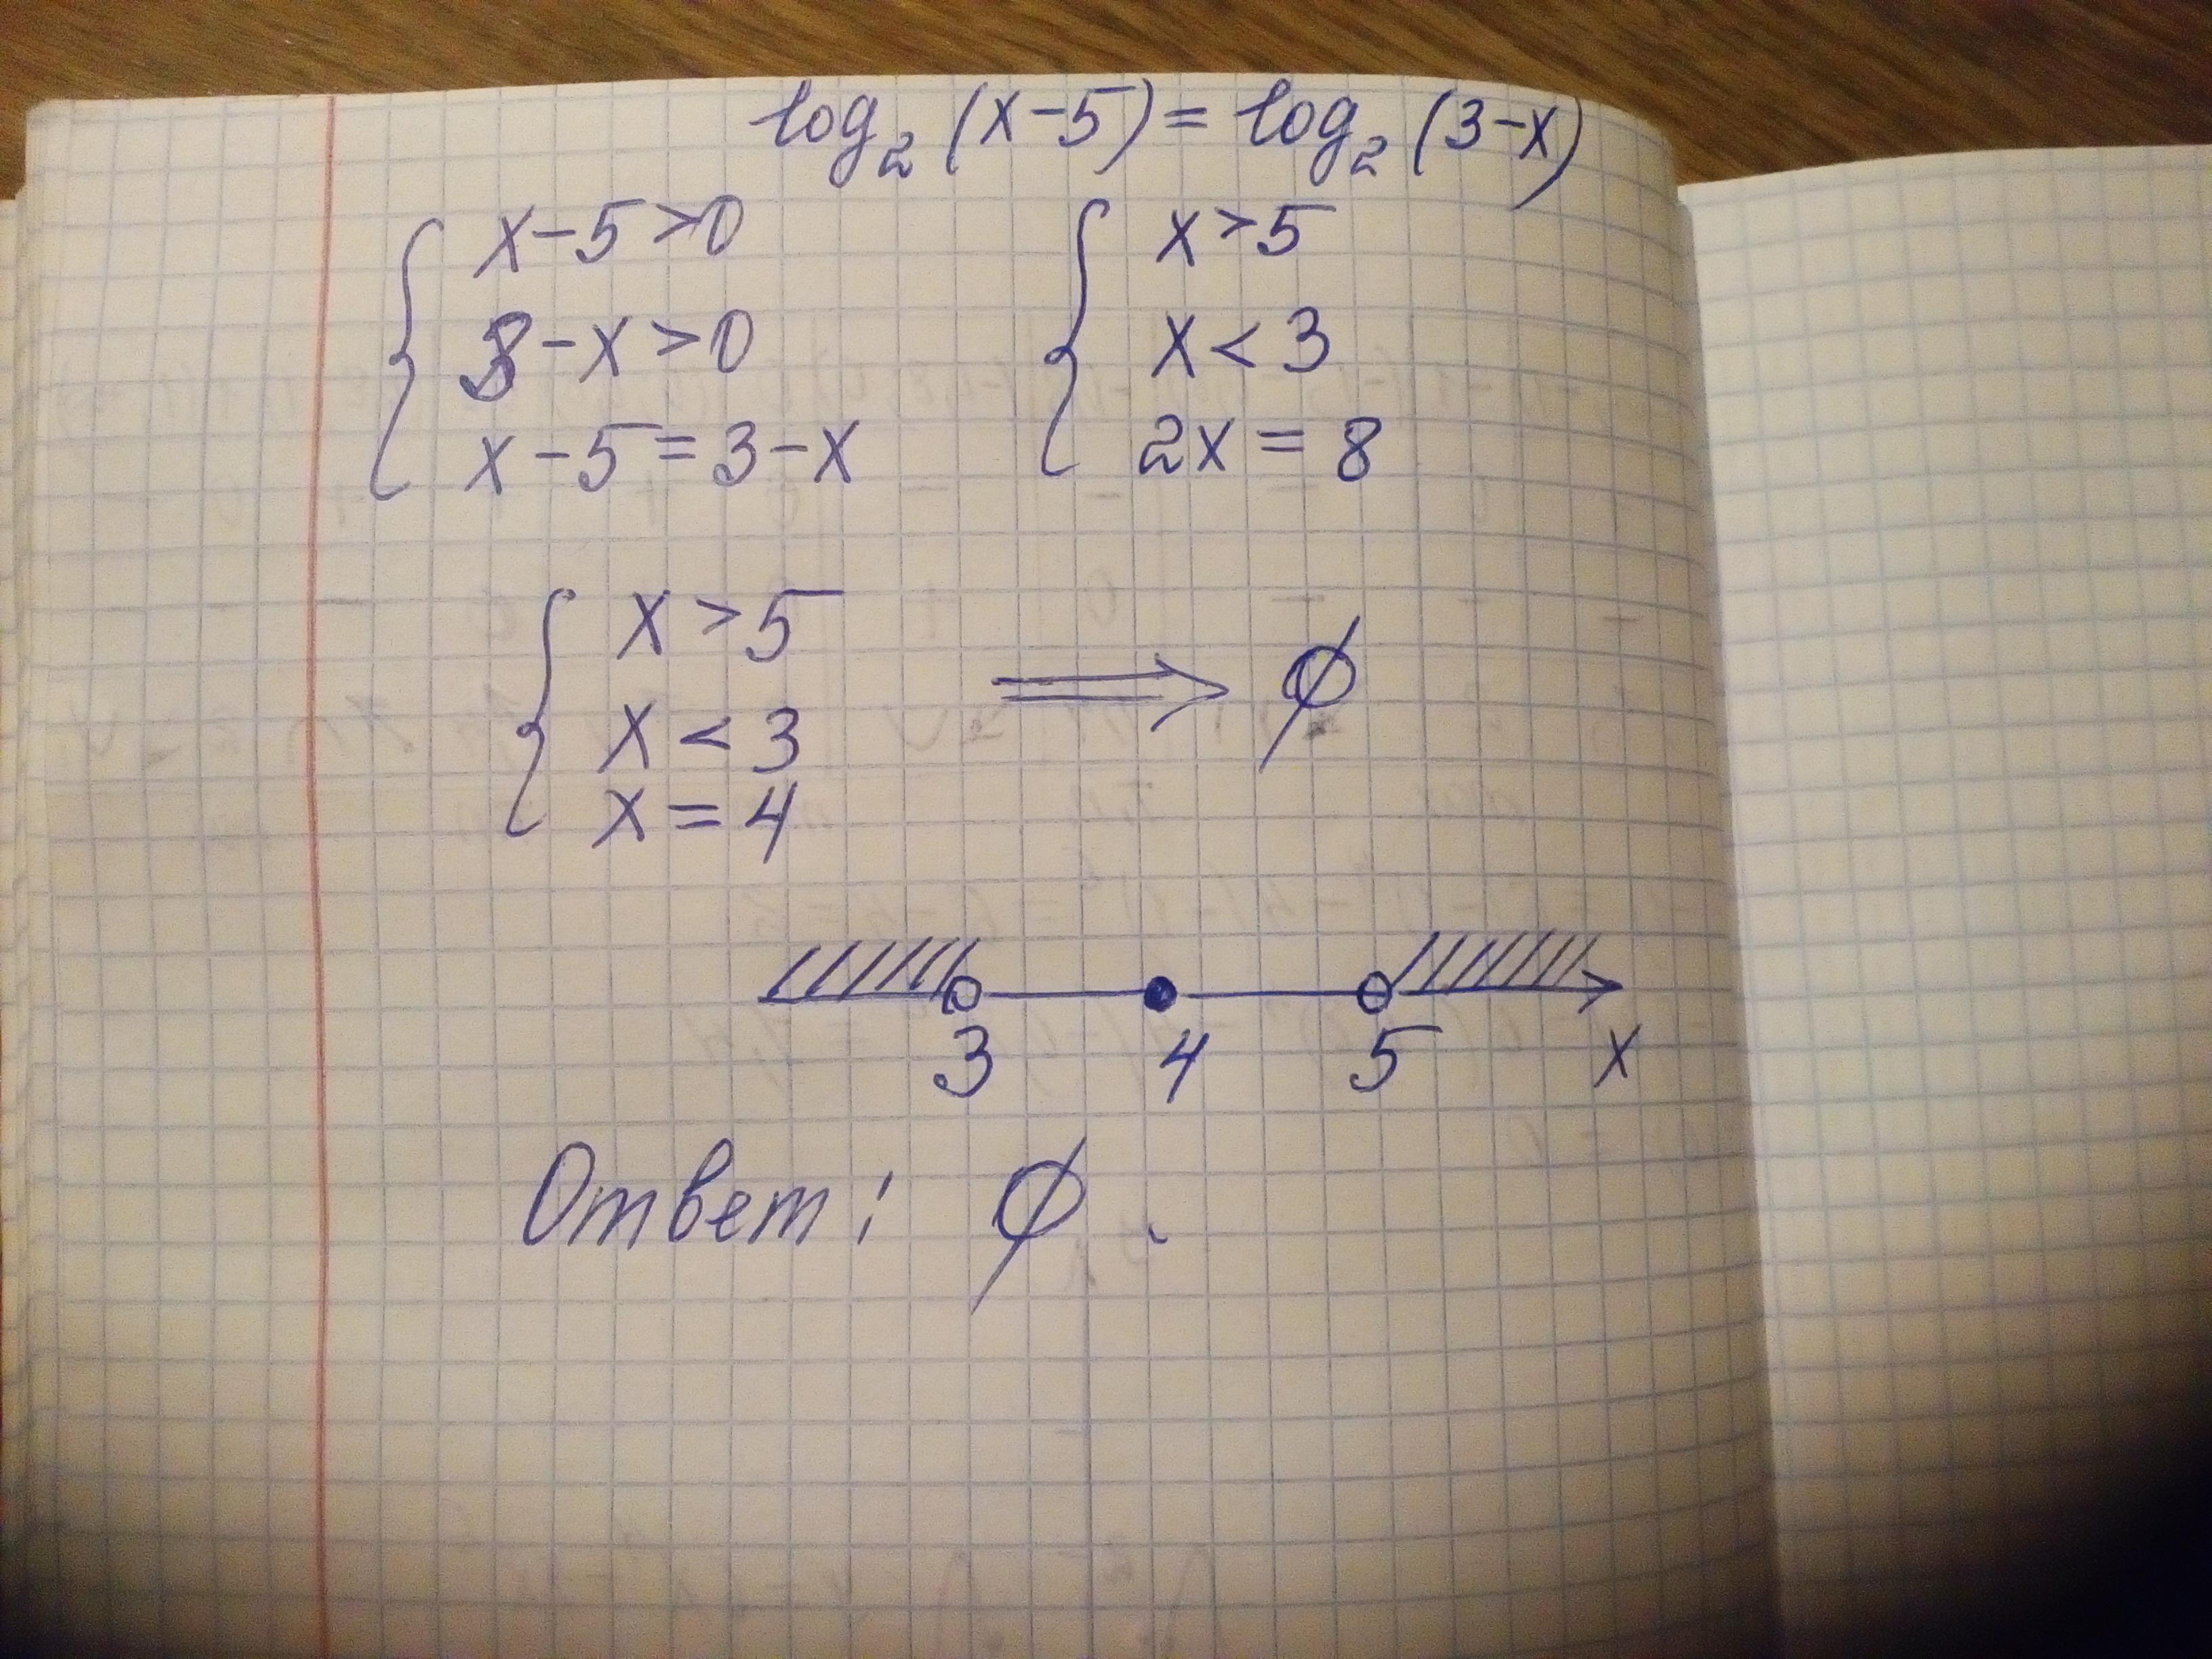 log₂(x-5)=log₂(3-x)
x-5>0 x>5
3-x>0 x<3
x-5=3-x 2x=8
x>5
x<3 ⟹ ∅
x=4
3 4 5 x
Ответ: ∅.